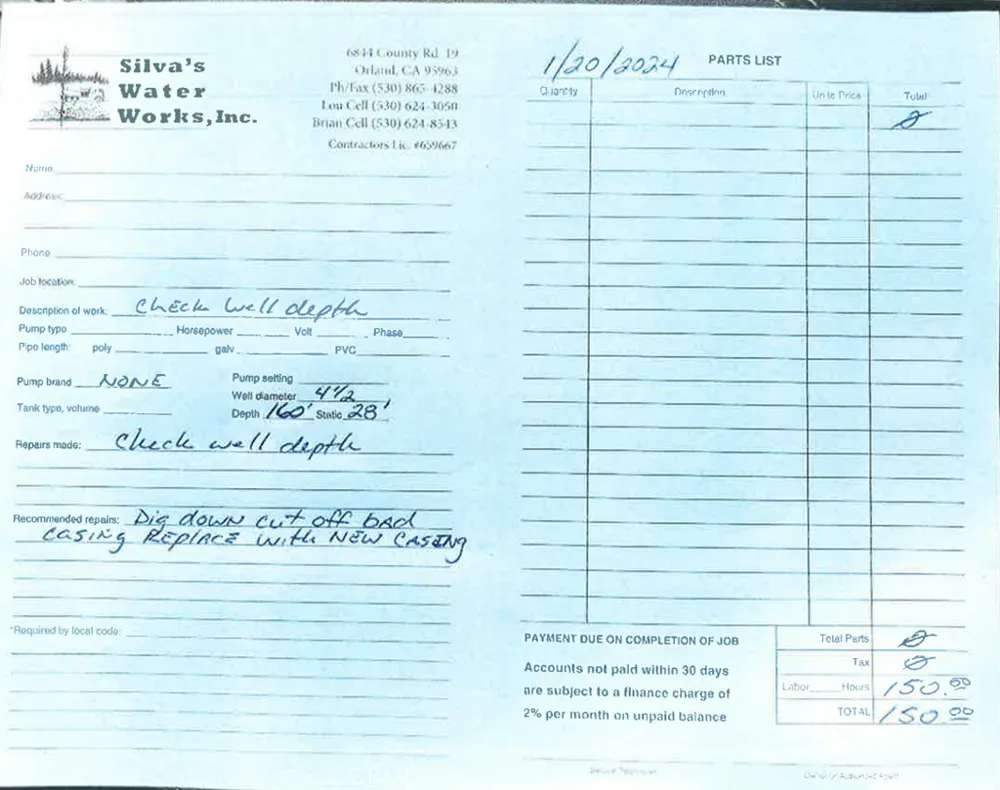 Silva's
Water
Works, Inc.
6844 County Rd 19
Orland, CA 95963
Ph/Fax (530) 865-4288
Lou Cell (530) 624-3050
Brian Cell (530) 624-8543
Contractors Lic. #659667
Name
Address:
Phone
Job location:
Description of work: Check well depth
Pump type Horsepower Volt Phase
Pipe length: poly galv. PVC
Pump brand NONE Pump setting
Well diameter 4 1/2
Tank type, volume Depth 160' Static 28'
Repairs made: Check well depth
Recommended repairs: Dig down cut off bad
casing Replace with New Casing
*Required by local code:
1/20/2024 PARTS LIST
Quantity Description Unite Price Total
0
PAYMENT DUE ON COMPLETION OF JOB
Accounts not paid within 30 days
are subject to a finance charge of
2% per month on unpaid balance
Total Parts 0
Tax 0
Labor Hours 150.00
TOTAL 150.00